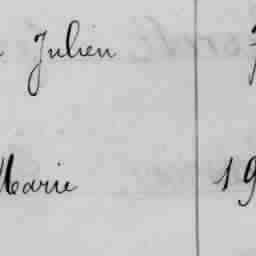 Julien
Marie 19